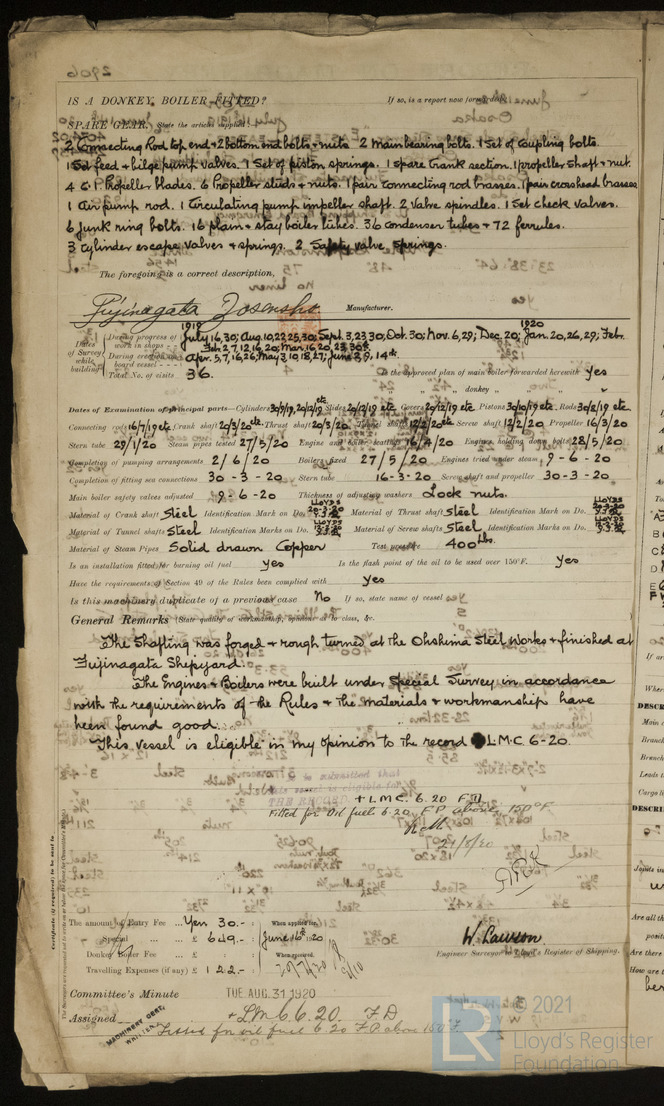 IS A DONKEY BOILER FITTED? If so, is a report now forwarded?
SPARE GEAR. State the articles supplied:
2 Connecting Rod top end & 2 bottom end bolts & nuts. 2 Main bearing bolts. 1 Set of Coupling bolts.
1 Set feed & bilge pump valves. 1 Set of piston springs. 1 spare Crank section. 1 propeller shaft & nut.
4 C.I. Propeller blades. 6 Propeller studs & nuts. 1 pair Connecting rod brasses. 1 pair crosshead brasses
1 Air pump rod. 1 Circulating pump impeller shaft. 2 Valve spindles. 1 Set check valves.
6 Junk ring bolts. 16 plain & stay boiler tubes. 36 condenser tubes & 72 ferrules.
3 Cylinder escape valves & springs. 2 Safety valve springs.
The foregoing is a correct description,
Fujinagata Zosensho Manufacturer.
1919 1920
Dates of Survey while building
During progress of work in shops - - July 16, 30; Aug. 10, 22, 25, 30; Sept. 3, 23, 30; Oct. 30; Nov. 6, 29; Dec. 20; Jan. 20, 26, 29; Feb.
Feb. 2, 7, 12, 16, 20; Mar. 16, 20, 23, 30th
During erection on board vessel - - - Apr. 5, 7, 16, 26; May 3, 10, 18, 27; June 3, 9, 14th
Total No. of visits 36. Is the approved plan of main boiler forwarded herewith Yes
" " " donkey " " "
Dates of Examination of principal parts—Cylinders 30/9/19, 20/12/19 etc Slides 20/12/19 etc Covers 20/12/19 etc Pistons 30/10/19 etc Rods 30/8/19 etc
Connecting rods 16/7/19 etc Crank shaft 20/3/20 etc Thrust shaft 20/3/20 Tunnel shafts 12/2/20 etc Screw shaft 12/2/20 Propeller 16/3/20
Stern tube 29/1/20 Steam pipes tested 27/5/20 Engine and boiler seatings 16/4/20 Engines holding down bolts 28/5/20
Completion of pumping arrangements 2/6/20 Boilers fixed 27/5/20 Engines tried under steam 9-6-20
Completion of fitting sea connections 30-3-20 Stern tube 16-3-20 Screw shaft and propeller 30-3-20
Main boiler safety valves adjusted 9-6-20 Thickness of adjusting washers Lock nuts.
Material of Crank shaft Steel Identification Mark on Do. LLOYDS Material of Thrust shaft Steel Identification Mark on Do. LLOYDS
Material of Tunnel shafts Steel Identification Marks on Do. LLOYDS Material of Screw shafts Steel Identification Marks on Do. LLOYDS
Material of Steam Pipes Solid drawn Copper Test pressure 400 lbs.
Is an installation fitted for burning oil fuel yes Is the flash point of the oil to be used over 150°F. Yes
Have the requirements of Section 49 of the Rules been complied with yes
Is this machinery duplicate of a previous case No If so, state name of vessel
General Remarks (State quality of workmanship, opinions as to class, &c.
The Shafting was forged & rough turned at the Ohshima Steel Works & finished at
Fujinagata Shipyard.
The Engines & Boilers were built under Special Survey in accordance
with the requirements of the Rules & the materials & workmanship have
been found good.
This vessel is eligible in my opinion to the record L.M.C. 6-20.
It is submitted that
this vessel is eligible for
THE RECORD + LMC. 6.20 FD
Fitted for Oil fuel 6.20 F.P. above 150°F.
21/8/20
The amount of Entry Fee ... Yen 30.- : When applied for,
Special ... £ 649.- : June 16th 20
Donkey Boiler Fee ... £ : When received,
Travelling Expenses (if any) £ 122.- :
W. Lawson
Engineer Surveyor to Lloyd's Register of Shipping.
Committee's Minute TUE. AUG. 31 1920
Assigned + LMC 6.20. F.D
Fitted for oil fuel 6.20 F.P. above 150°F.
MACHINERY CERT. WRITTEN.
Certificate (if required) to be sent to
© 2021
Lloyd's Register
Foundation
LR